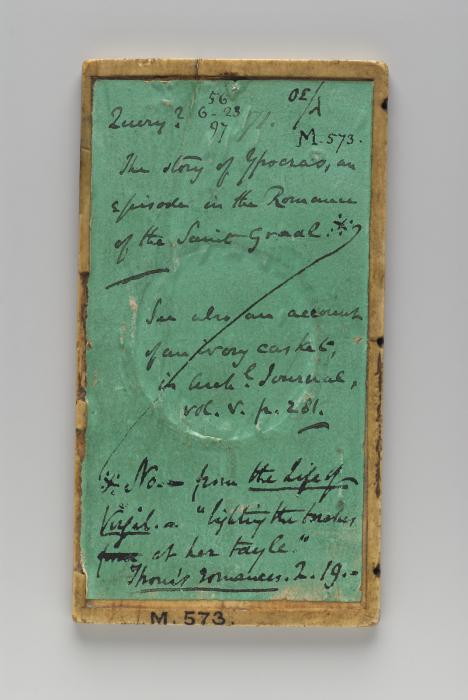 Query?
56
6-23
97
M. 573.
The story of Ypocras, an
episode in the Romance
of the Saint Graal.※
See also an account
of an ivory casket,
in Arch.l Journal,
vol. V. p. 281.
※ No.— from the Life of
Virgil. a "lighting the torches
at her tayle."
Thom's romances. 2. 19.—
M. 573.